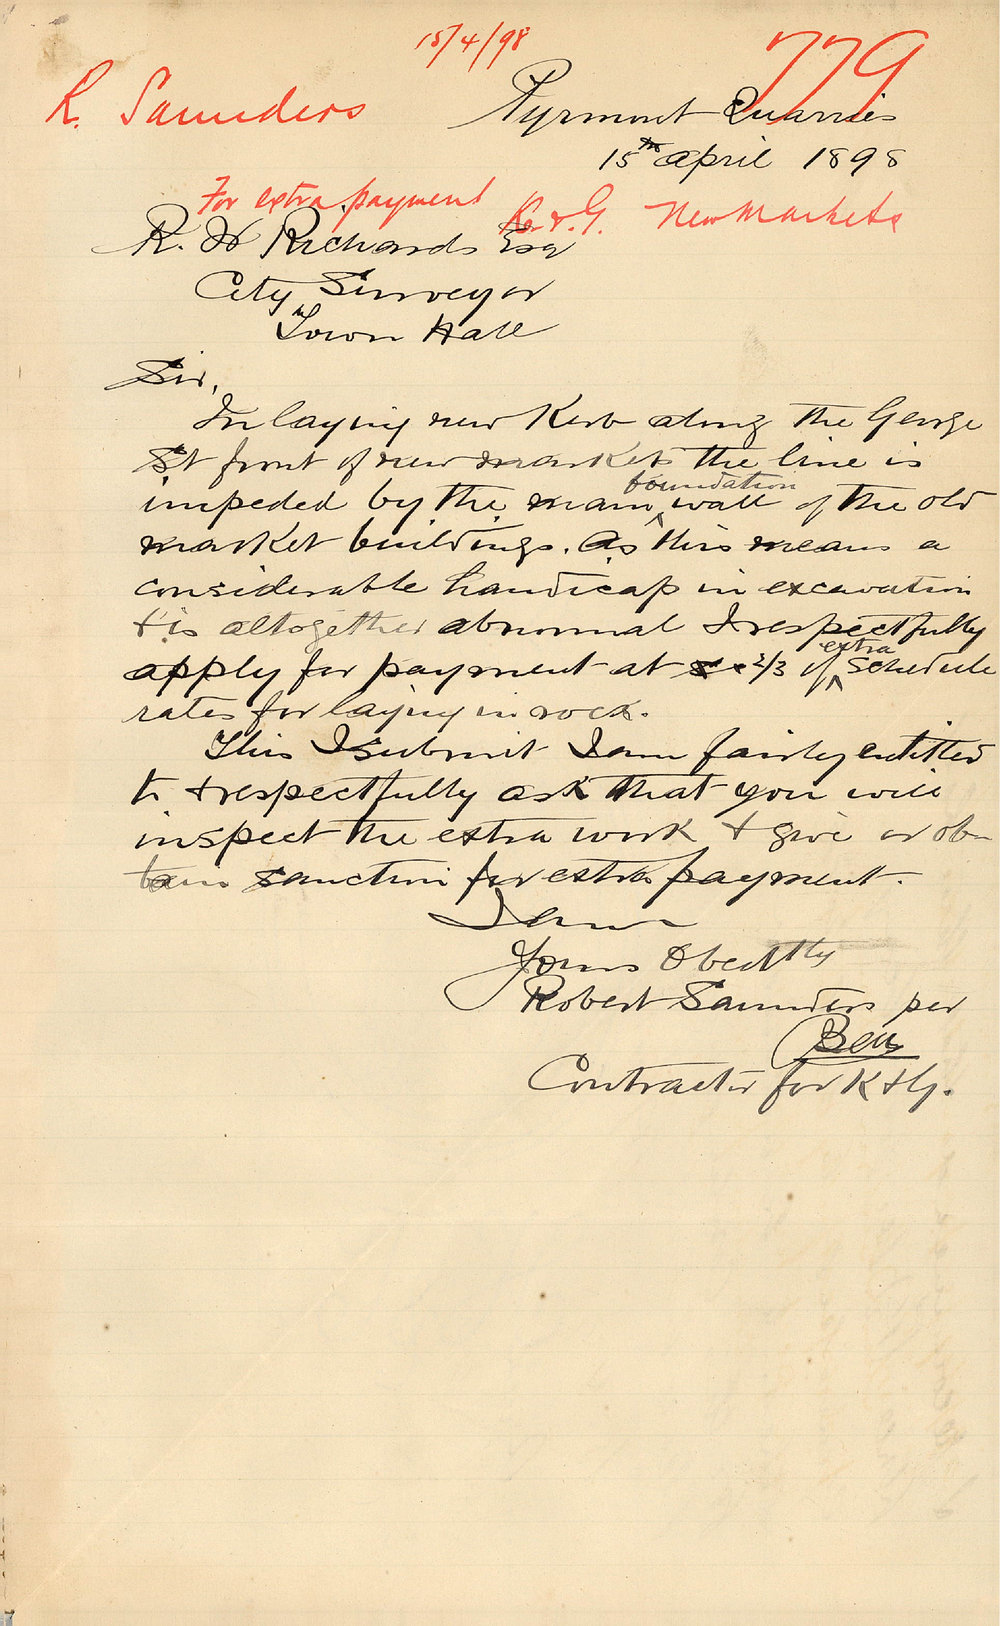 15/4/98
779
R. Saunders
Pyrmont Quarries
15th April 1898
For extra payment K. & G. New Markets
R. W Richards Esq
City Surveyor
Town Hall
Sir,
In laying new Kerb along the George
St front of new markets the line is
impeded by the main foundation wall of the old
market buildings. As this means a
considerable handicap in excavation
& is altogether abnormal I respectfully
apply for payment at 2/3 of extra schedule
rates for laying in rock.
This I submit I am fairly entitled
to & respectfully ask that you will
inspect the extra work & give or ob-
tain sanction for extra payment.
I am
Yours Obedtly
Robert Saunders per
Contractor for K & G.